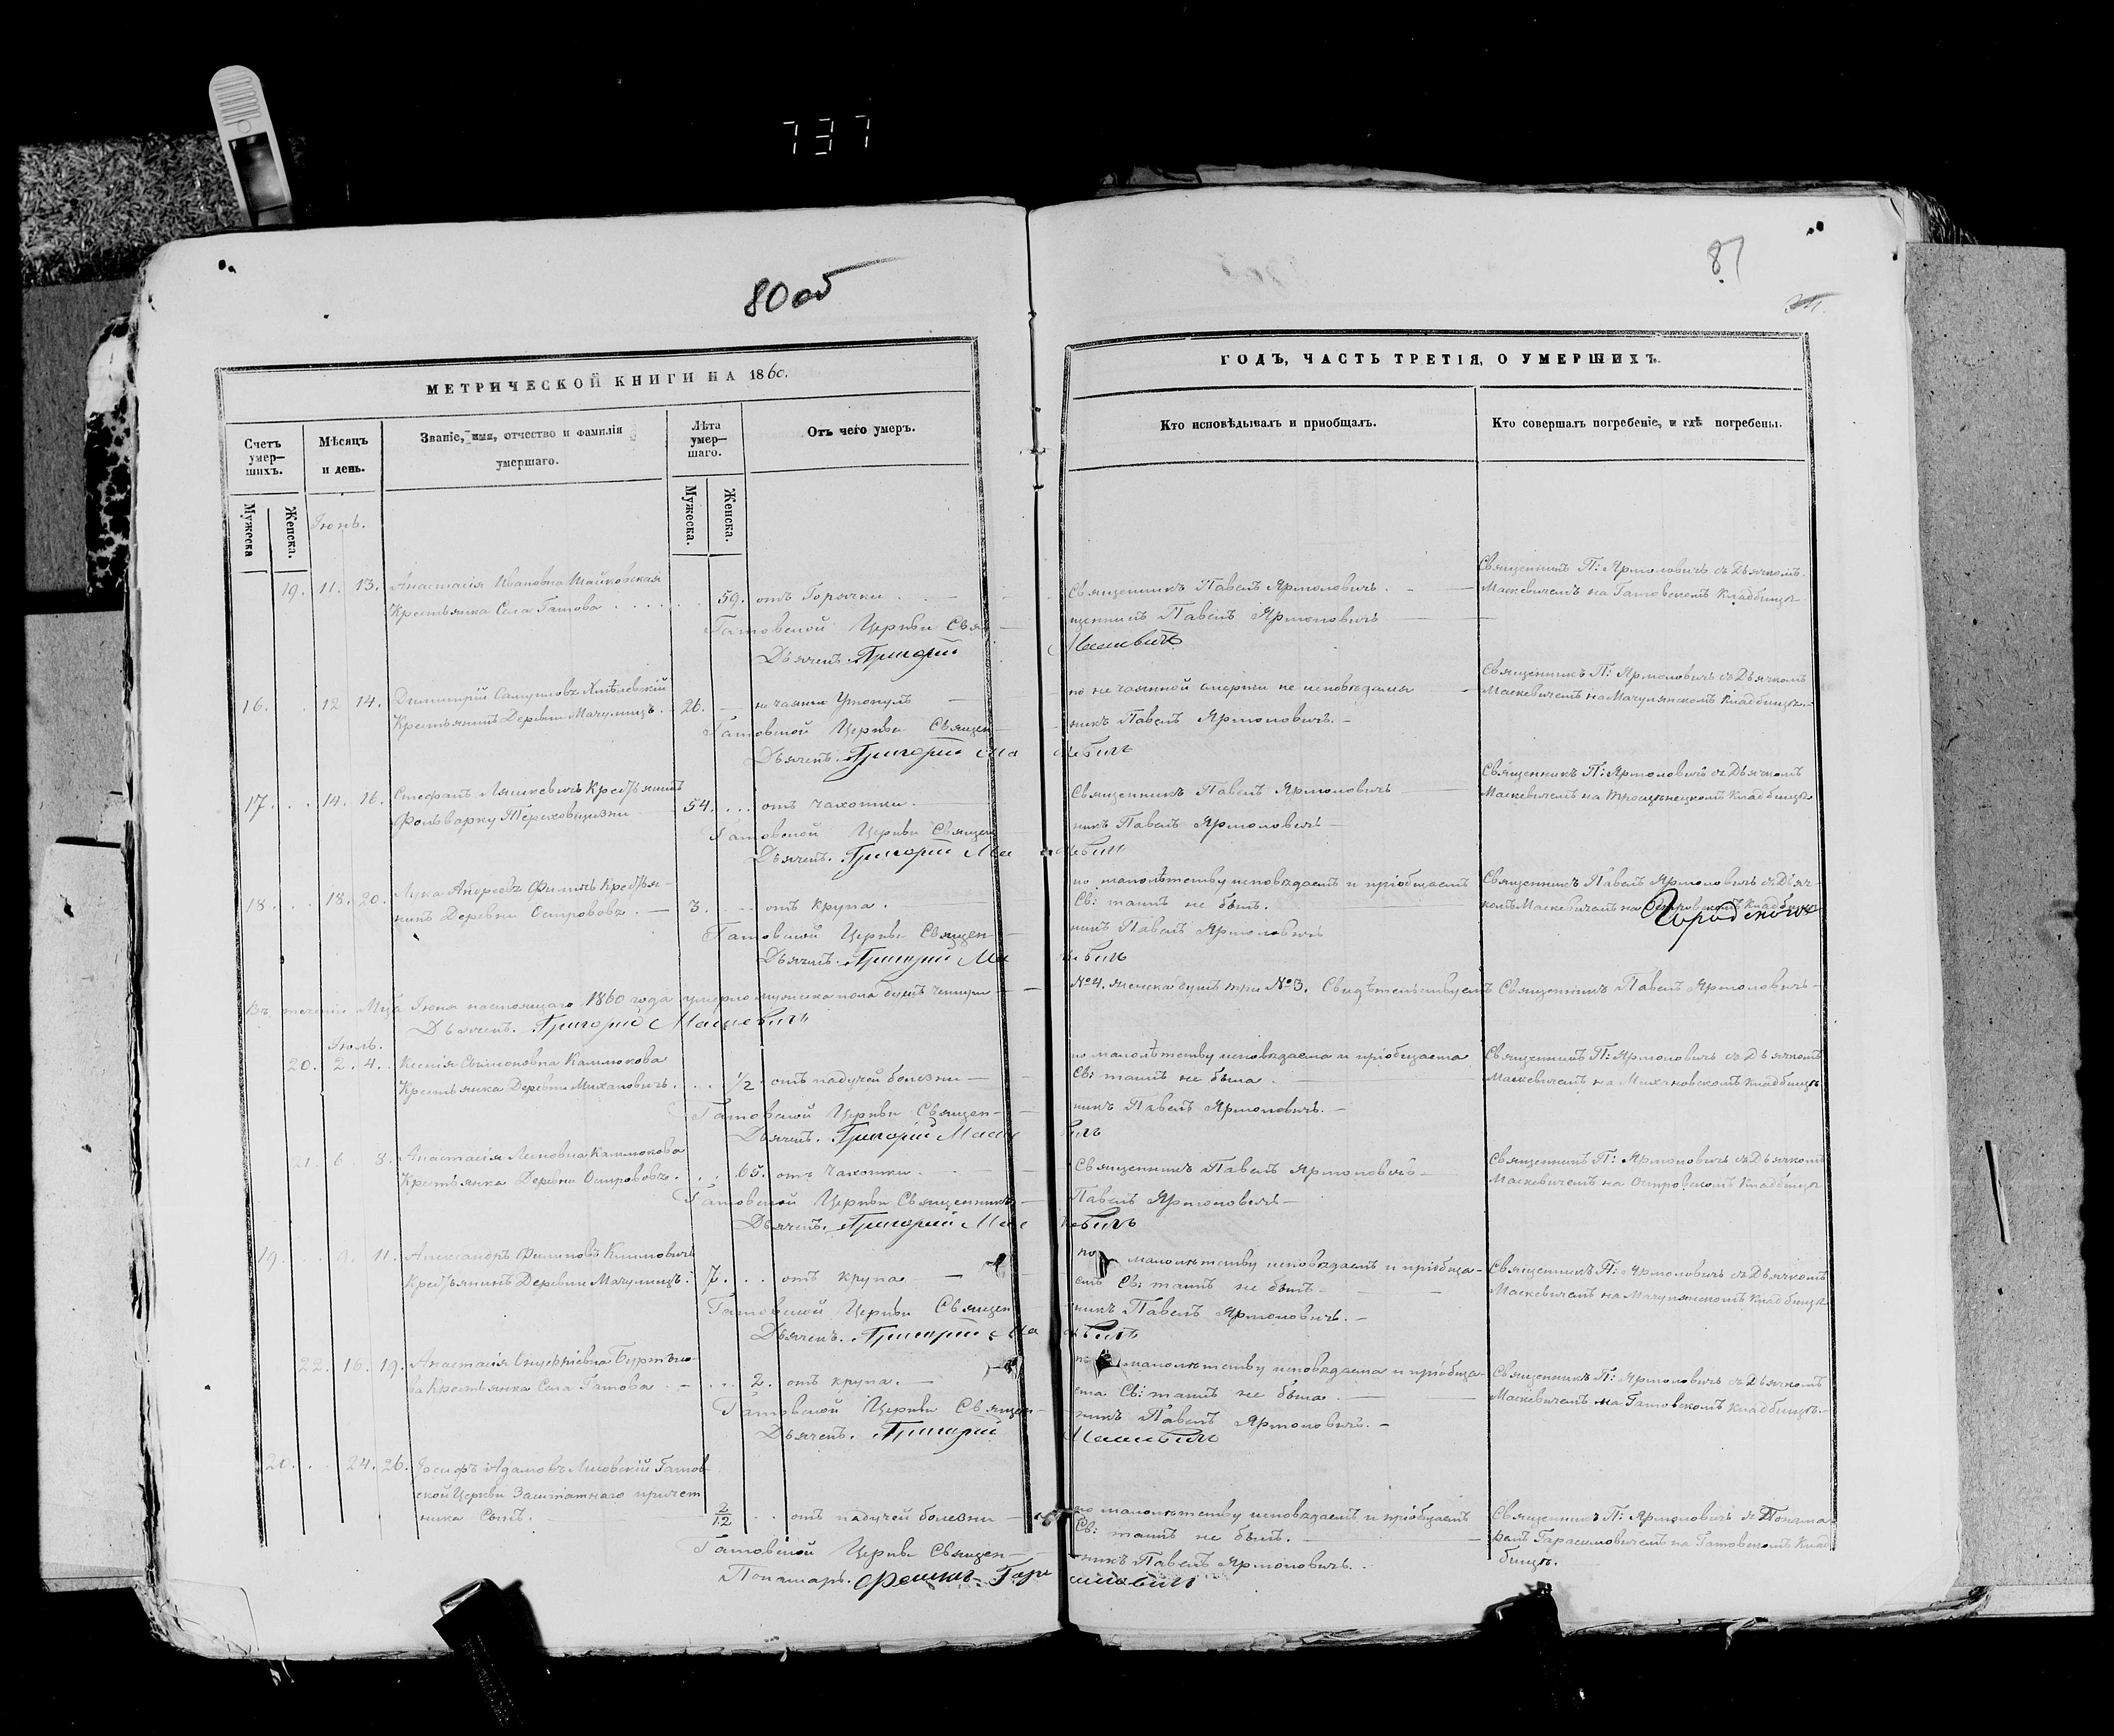 737
80 об
81
МЕТРИЧЕСКОЙ КНИГИ НА 1860.
ГОДЪ, ЧАСТЬ ТРЕТІЯ, О УМЕРШИХЪ.
Счетъ умер—шихъ.
Мѣсяцъ и день.
Званіе, имя, отчество и фамилія умершаго.
Лѣта умер—шаго.
Отъ чего умеръ.
Кто исповѣдывалъ и пріобщалъ.
Кто совершалъ погребеніе, и гдѣ погребены.
Мужеска
Женска.
Мужеска.
Женска.
Іюнь.
19. 11. 13. Анастасія Ивановна
Крестьянка Села Гатова 59. отъ Горячки.
Священникъ Павелъ Ярмоловичъ.
Священникъ П: Ярмоловичъ съ Дьячкомъ
Маскевичемъ на Гатовскомъ Кладбищѣ
Гатовской Церкви Священникъ Павелъ Ярмоловичъ
Дьячекъ Григорій Маскевичъ
16. 12 14. Димитрій
Крестьянинъ Деревни Мачулищъ. 26. нечаянно Утонулъ
по нечаянной смерти не исповѣдался
Священникъ П: Ярмоловичъ съ Дьячкомъ
Маскевичемъ на Мачулянскомъ Кладбищѣ.
Гатовской Церкви Священникъ Павелъ Ярмоловичъ.
Дьячекъ Григорій Маскевичъ
17. 14. 16. Стефанъ Ляшкевичъ Крестьянинъ
Фольварку 54. отъ чахотки.
Священникъ Павелъ Ярмоловичъ
Священникъ П: Ярмоловичъ съ Дьячкомъ
Маскевичемъ на Тростенецкомъ Кладбищѣ
Гатовской Церкви Священникъ Павелъ Ярмоловичъ
Дьячекъ. Григорій Маскевичъ
18. 18. 20. Лука Андреевъ Крестья-
нинъ Деревни Островова. 3. отъ крупа.
по малолѣтству исповѣдаемъ и пріобщаемъ
Св: таинъ не былъ.
Священникъ Павелъ Ярмоловичъ съ Дьяч-
комъ Маскевичемъ на Островскомъ Кладбищѣ
Гатовской Церкви Священникъ Павелъ Ярмоловичъ
Дьячекъ Григорій Маскевичъ
Въ теченіи М-ца Іюня настоящаго 1860 года умерло мужеска пола душъ четыре № 4. женска душъ три № 3. Свидѣтельствуемъ Священникъ Павелъ Ярмоловичъ
Дьячекъ. Григорій Маскевичъ
Іюль.
20. 2. 4. Ксенія Симоновна Камлюкова
Крестьянка Деревни Михановичъ. 1/2 отъ падучей болезни
по малолѣтству исповѣдаема и пріобщаема
Св: таинъ не была.
Священникъ П: Ярмоловичъ съ Дьячкомъ
Маскевичемъ на Михановскомъ Кладбищѣ
Гатовской Церкви Священникъ Павелъ Ярмоловичъ.
Дьячекъ. Григорій Маскевичъ
21. 6. 8. Анастасія Камлюкова
Крестьянка Деревни Островова. 65. отъ чахотки.
Священникъ Павелъ Ярмоловичъ
Священникъ П: Ярмоловичъ съ Дьячкомъ
Маскевичемъ на Островскомъ Кладбищѣ
Гатовской Церкви Священникъ Павелъ Ярмоловичъ
Дьячекъ. Григорій Маскевичъ
19. 9. 11. Александръ Филиповъ Климовичъ
Крестьянинъ Деревни Мачулищъ. 7. отъ крупа
по малолѣтству исповѣдаемъ и пріобща-
емъ Св: таинъ не былъ
Священникъ П: Ярмоловичъ съ Дьячкомъ
Маскевичемъ на Мачулянскомъ Кладбищѣ
Гатовской Церкви Священникъ Павелъ Ярмоловичъ.
Дьячекъ. Григорій Маскевичъ
22. 16. 19. Анастасія Онуфріевна
Крестьянка Села Гатова 2. отъ крупа.
по малолѣтству исповѣдаема и пріобща-
ема Св: таинъ не была.
Священникъ П: Ярмоловичъ съ Дьячкомъ
Маскевичемъ на Гатовскомъ Кладбищѣ.
Гатовской Церкви Священникъ Павелъ Ярмоловичъ.
Дьячекъ. Григорій Маскевичъ
20. 24. 26. Іосифъ Адамовъ Лисовскій Гатов-
ской Церкви Заштатнаго причет-
ника Сынъ. 2/12 отъ падучей болезни
по малолѣтству исповѣдаемъ и пріобщаемъ
Св: таинъ не былъ.
Священникъ П: Ярмоловичъ съ Понама-
ремъ Гарасимовичемъ на Гатовскомъ Клад-
бищѣ.
Гатовской Церкви Священникъ Павелъ Ярмоловичъ.
Понамарь.